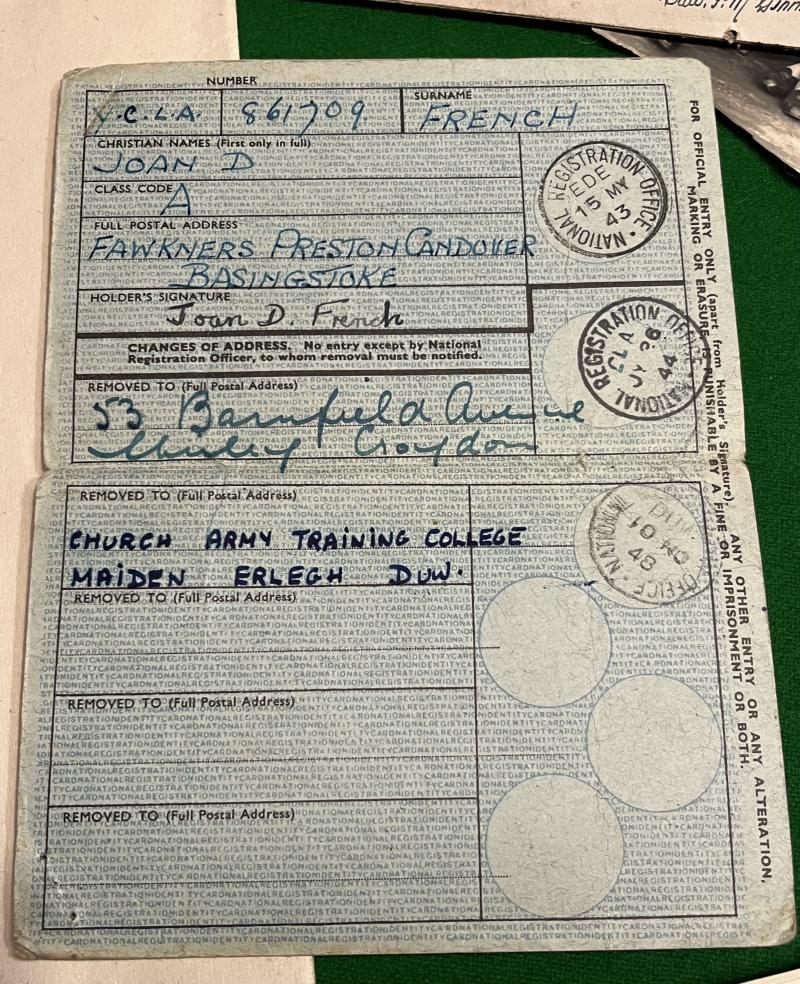 NUMBER
Y.C.L.A. 861709.
SURNAME
FRENCH
CHRISTIAN NAMES (First only in full)
JOAN D
CLASS CODE
A
FULL POSTAL ADDRESS
FAWKNERS PRESTON CANDOVER
BASINGSTOKE
HOLDER'S SIGNATURE
Joan D. French
NATIONAL REGISTRATION OFFICE
EDE
15 MY
43
CHANGES OF ADDRESS. No entry except by National
Registration Officer, to whom removal must be notified.
REMOVED TO (Full Postal Address)
53 Barnfield Avenue
Shirley Croydon
NATIONAL REGISTRATION OFFICE
CLA
JY 26
44
REMOVED TO (Full Postal Address)
CHURCH ARMY TRAINING COLLEGE
MAIDEN ERLEGH
NATIONAL OFFICE
10 NO
48
REMOVED TO (Full Postal Address)
REMOVED TO (Full Postal Address)
REMOVED TO (Full Postal Address)
FOR OFFICIAL ENTRY ONLY (apart from Holder's Signature). ANY OTHER ENTRY OR ANY ALTERATION,
MARKING OR ERASURE, IS PUNISHABLE BY A FINE OR IMPRISONMENT OR BOTH.